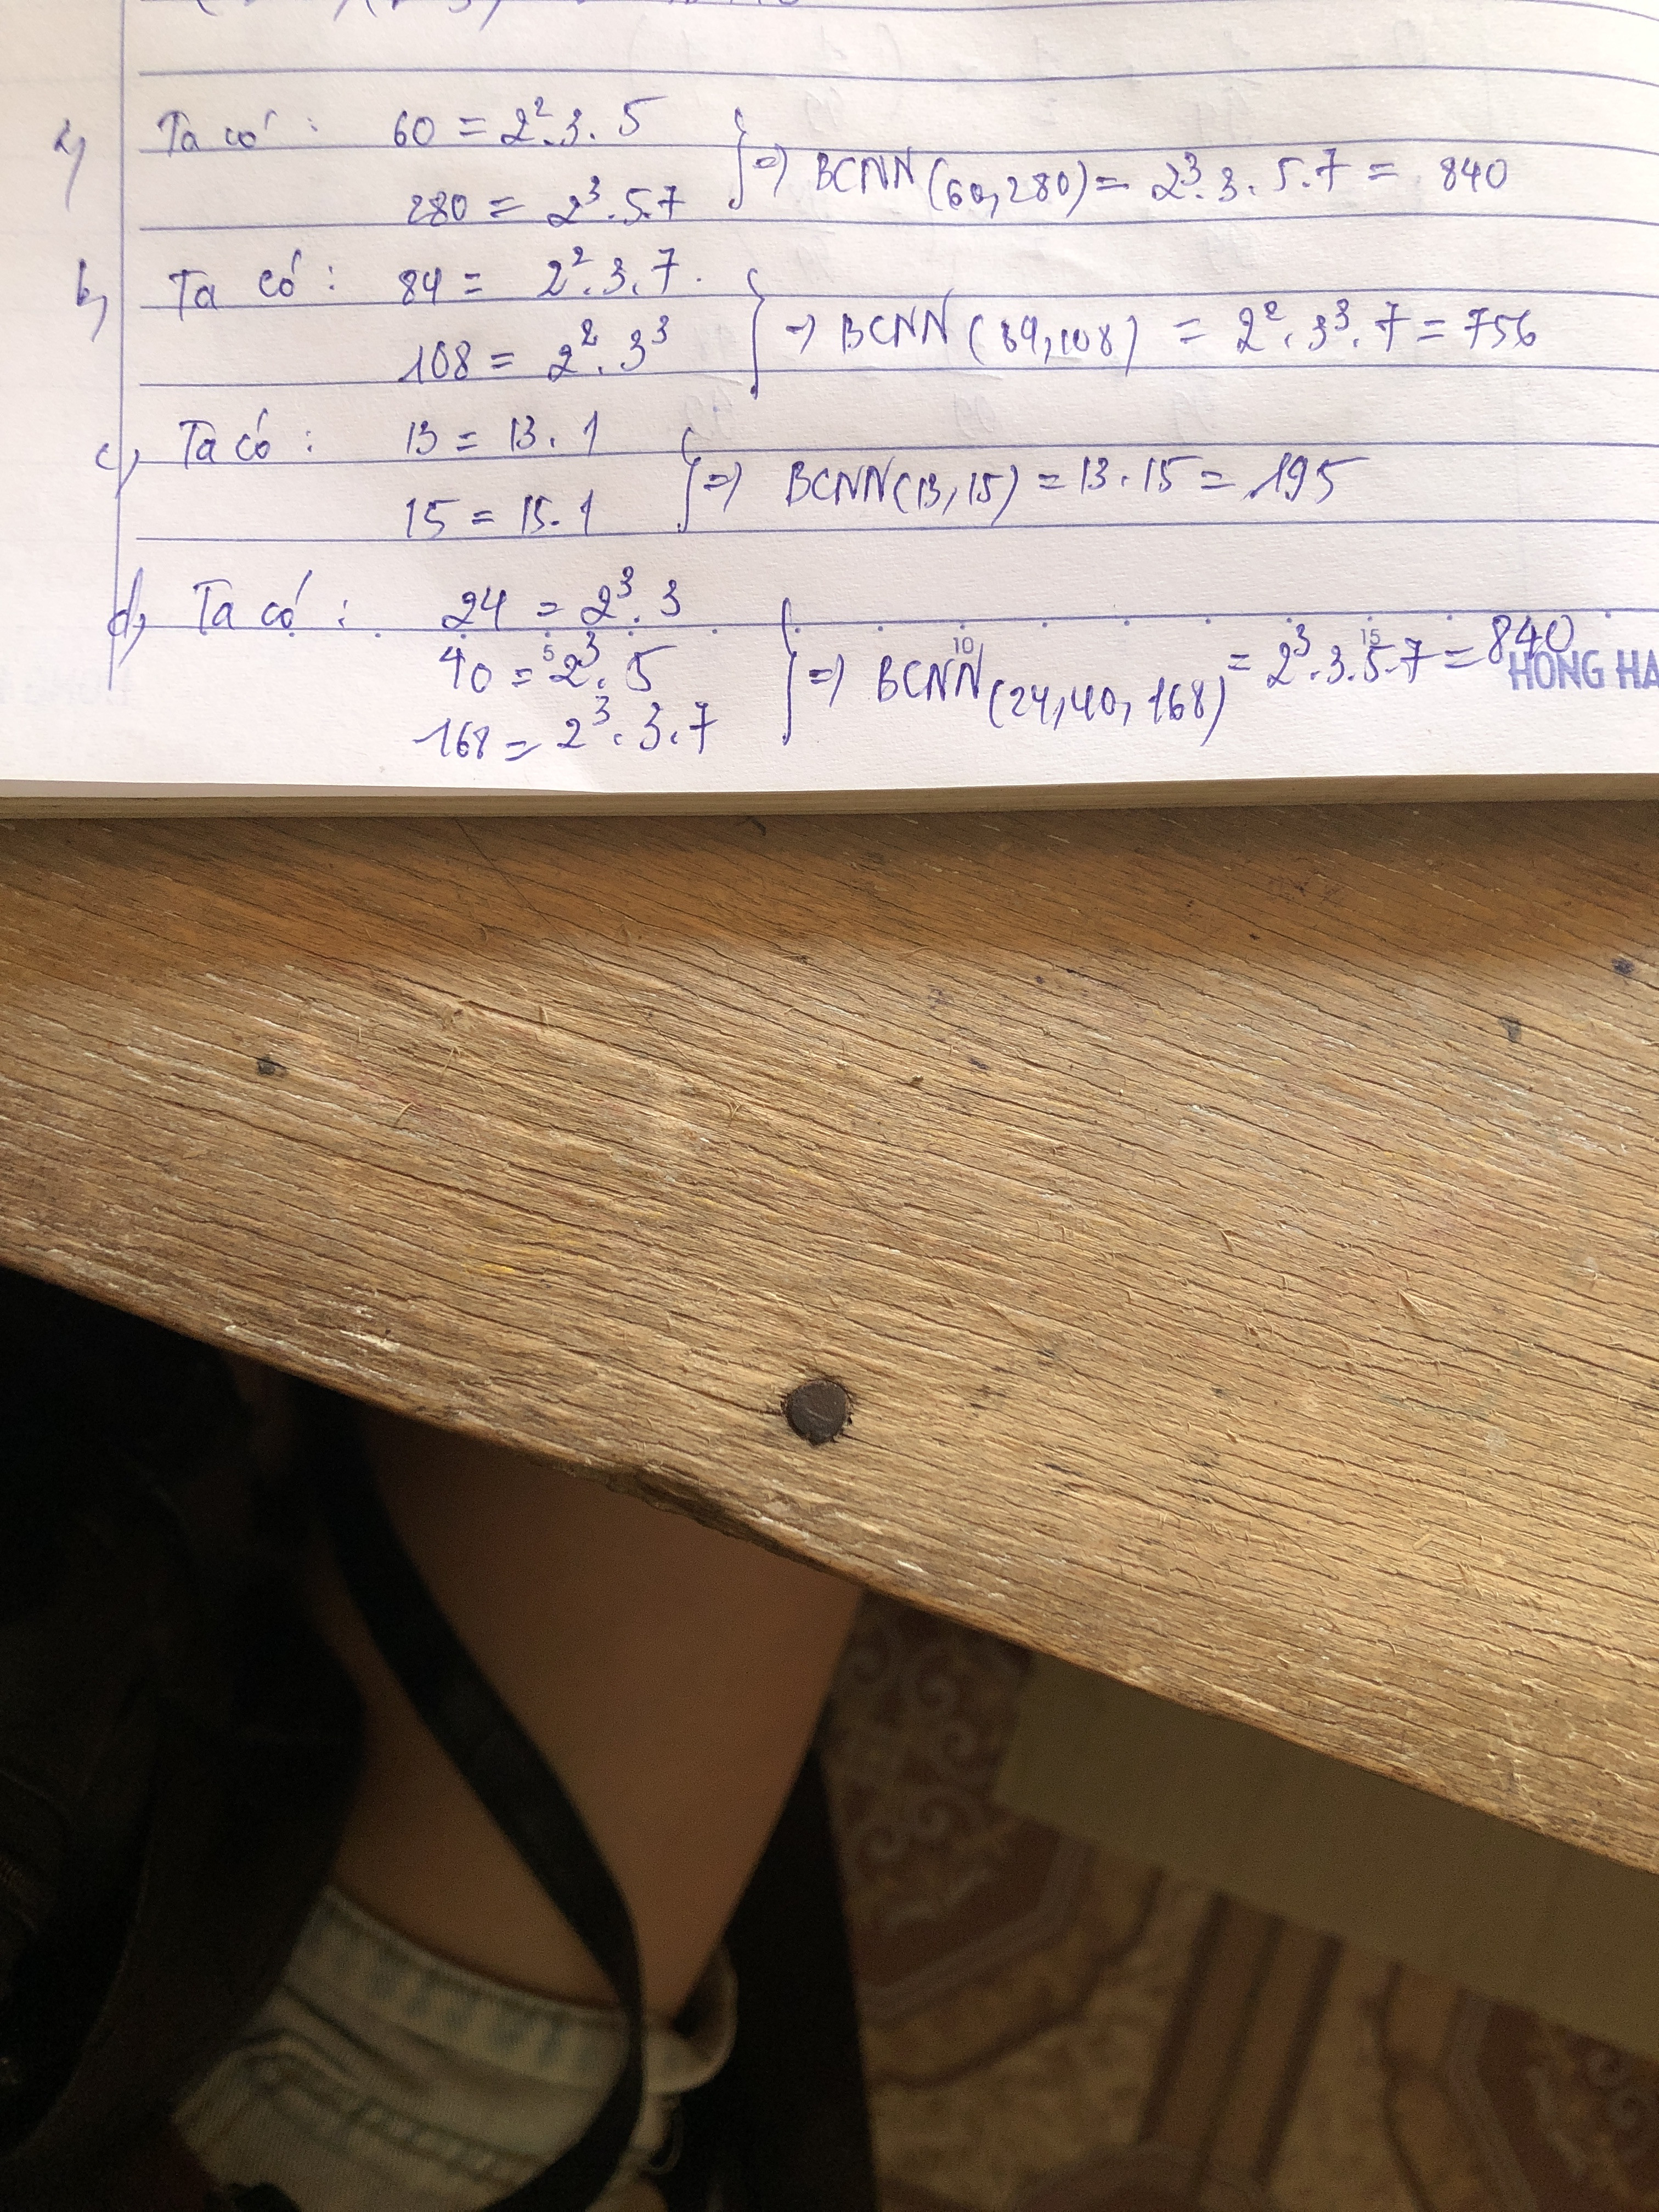 a, Ta có : 60 = 2².3.5
280 = 2³.5.7
} => BCNN(60,280) = 2³.3.5.7 = 840
b, Ta có : 84 = 2².3.7.
108 = 2².3³
} => BCNN(84,108) = 2².3³.7 = 756
c, Ta có : 13 = 13.1
15 = 15.1
} => BCNN(13,15) = 13.15 = 195
d, Ta có : 24 = 2³.3
40 = 2³.5
168 = 2³.3.7
} => BCNN(24,40,168) = 2³.3.5.7 = 840
5 10 15
HONG HA